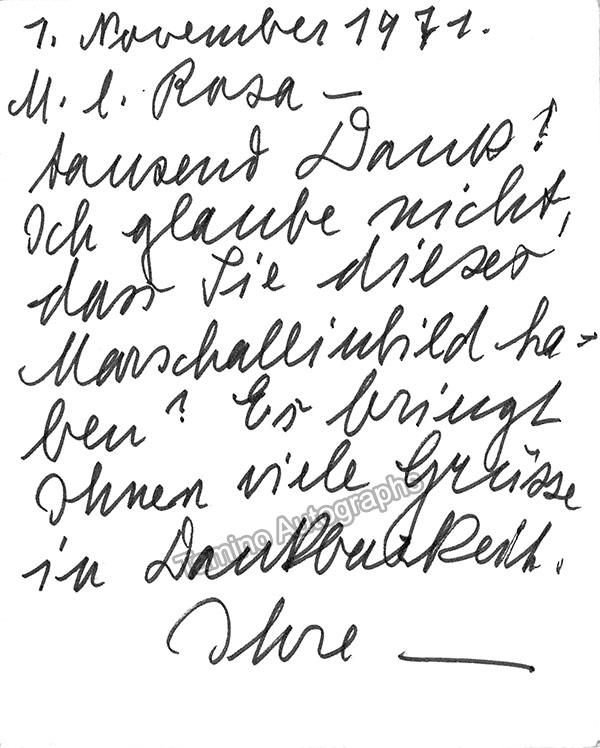 1. November 1971.
M. l. Rosa —
tausend Dank!
Ich glaube nicht,
dass Sie dieses
Marschallinbild ha-
ben? Es bringt
Ihnen viele Grüsse
in Dankbarkeit.
Tamino Autographs
Ihre —